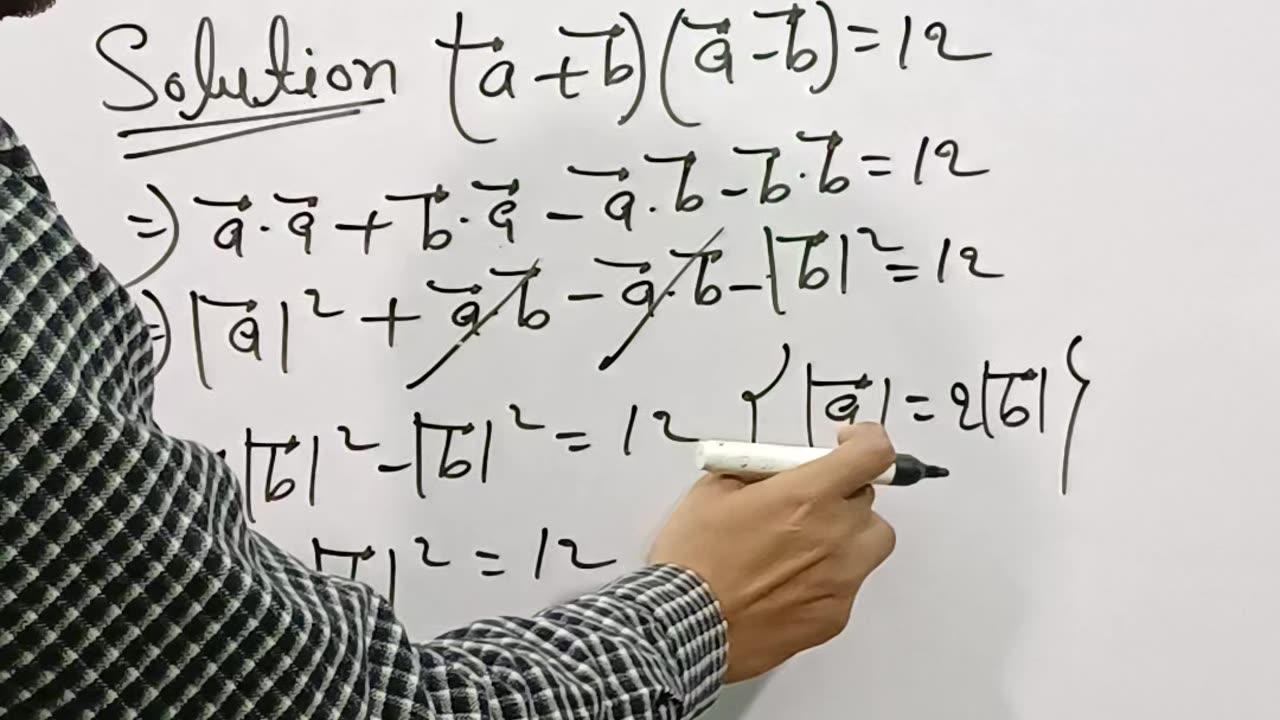 Solution (a⃗ + b⃗)(a⃗ - b⃗) = 12
=) a⃗ · a⃗ + b⃗ · a⃗ - a⃗ · b⃗ - b⃗ · b⃗ = 12
=) |a⃗|² + a⃗ · b⃗ - a⃗ · b⃗ - |b⃗|² = 12
{ |a⃗| = 2|b⃗| }
|b⃗|² - |b⃗|² = 12
|² = 12